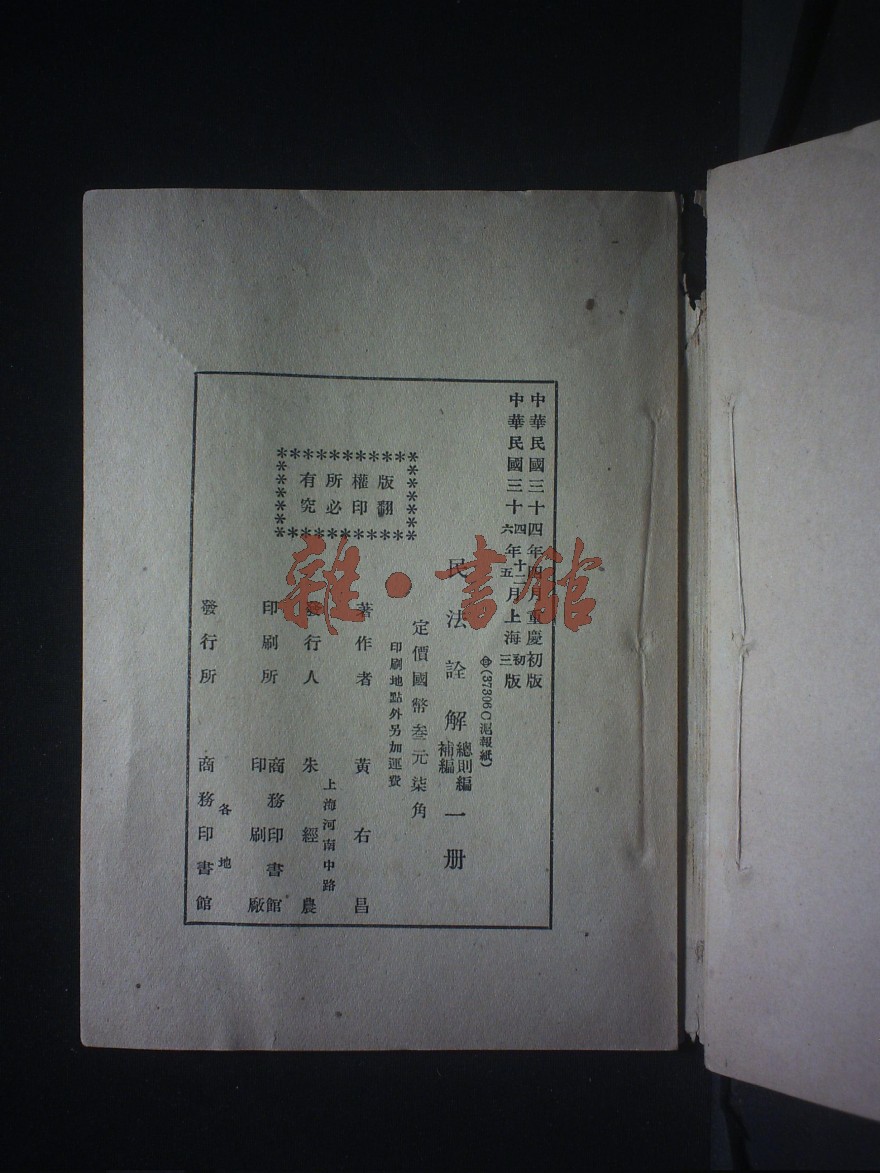 中華民國三十四年四月重慶初版
中華民國三十四年十二月上海初版
六年五月 三版
㊥(37306C滬報紙)
民法詮解 總則編 補編 一册
定價國幣叁元柒角
印刷地點外另加運費
版權所有
翻印必究
著作者 黃右昌
上海河南中路
發行人 朱經農
印刷所 商務印書館
印刷廠
各地
發行所 商務印書館
雜·書館